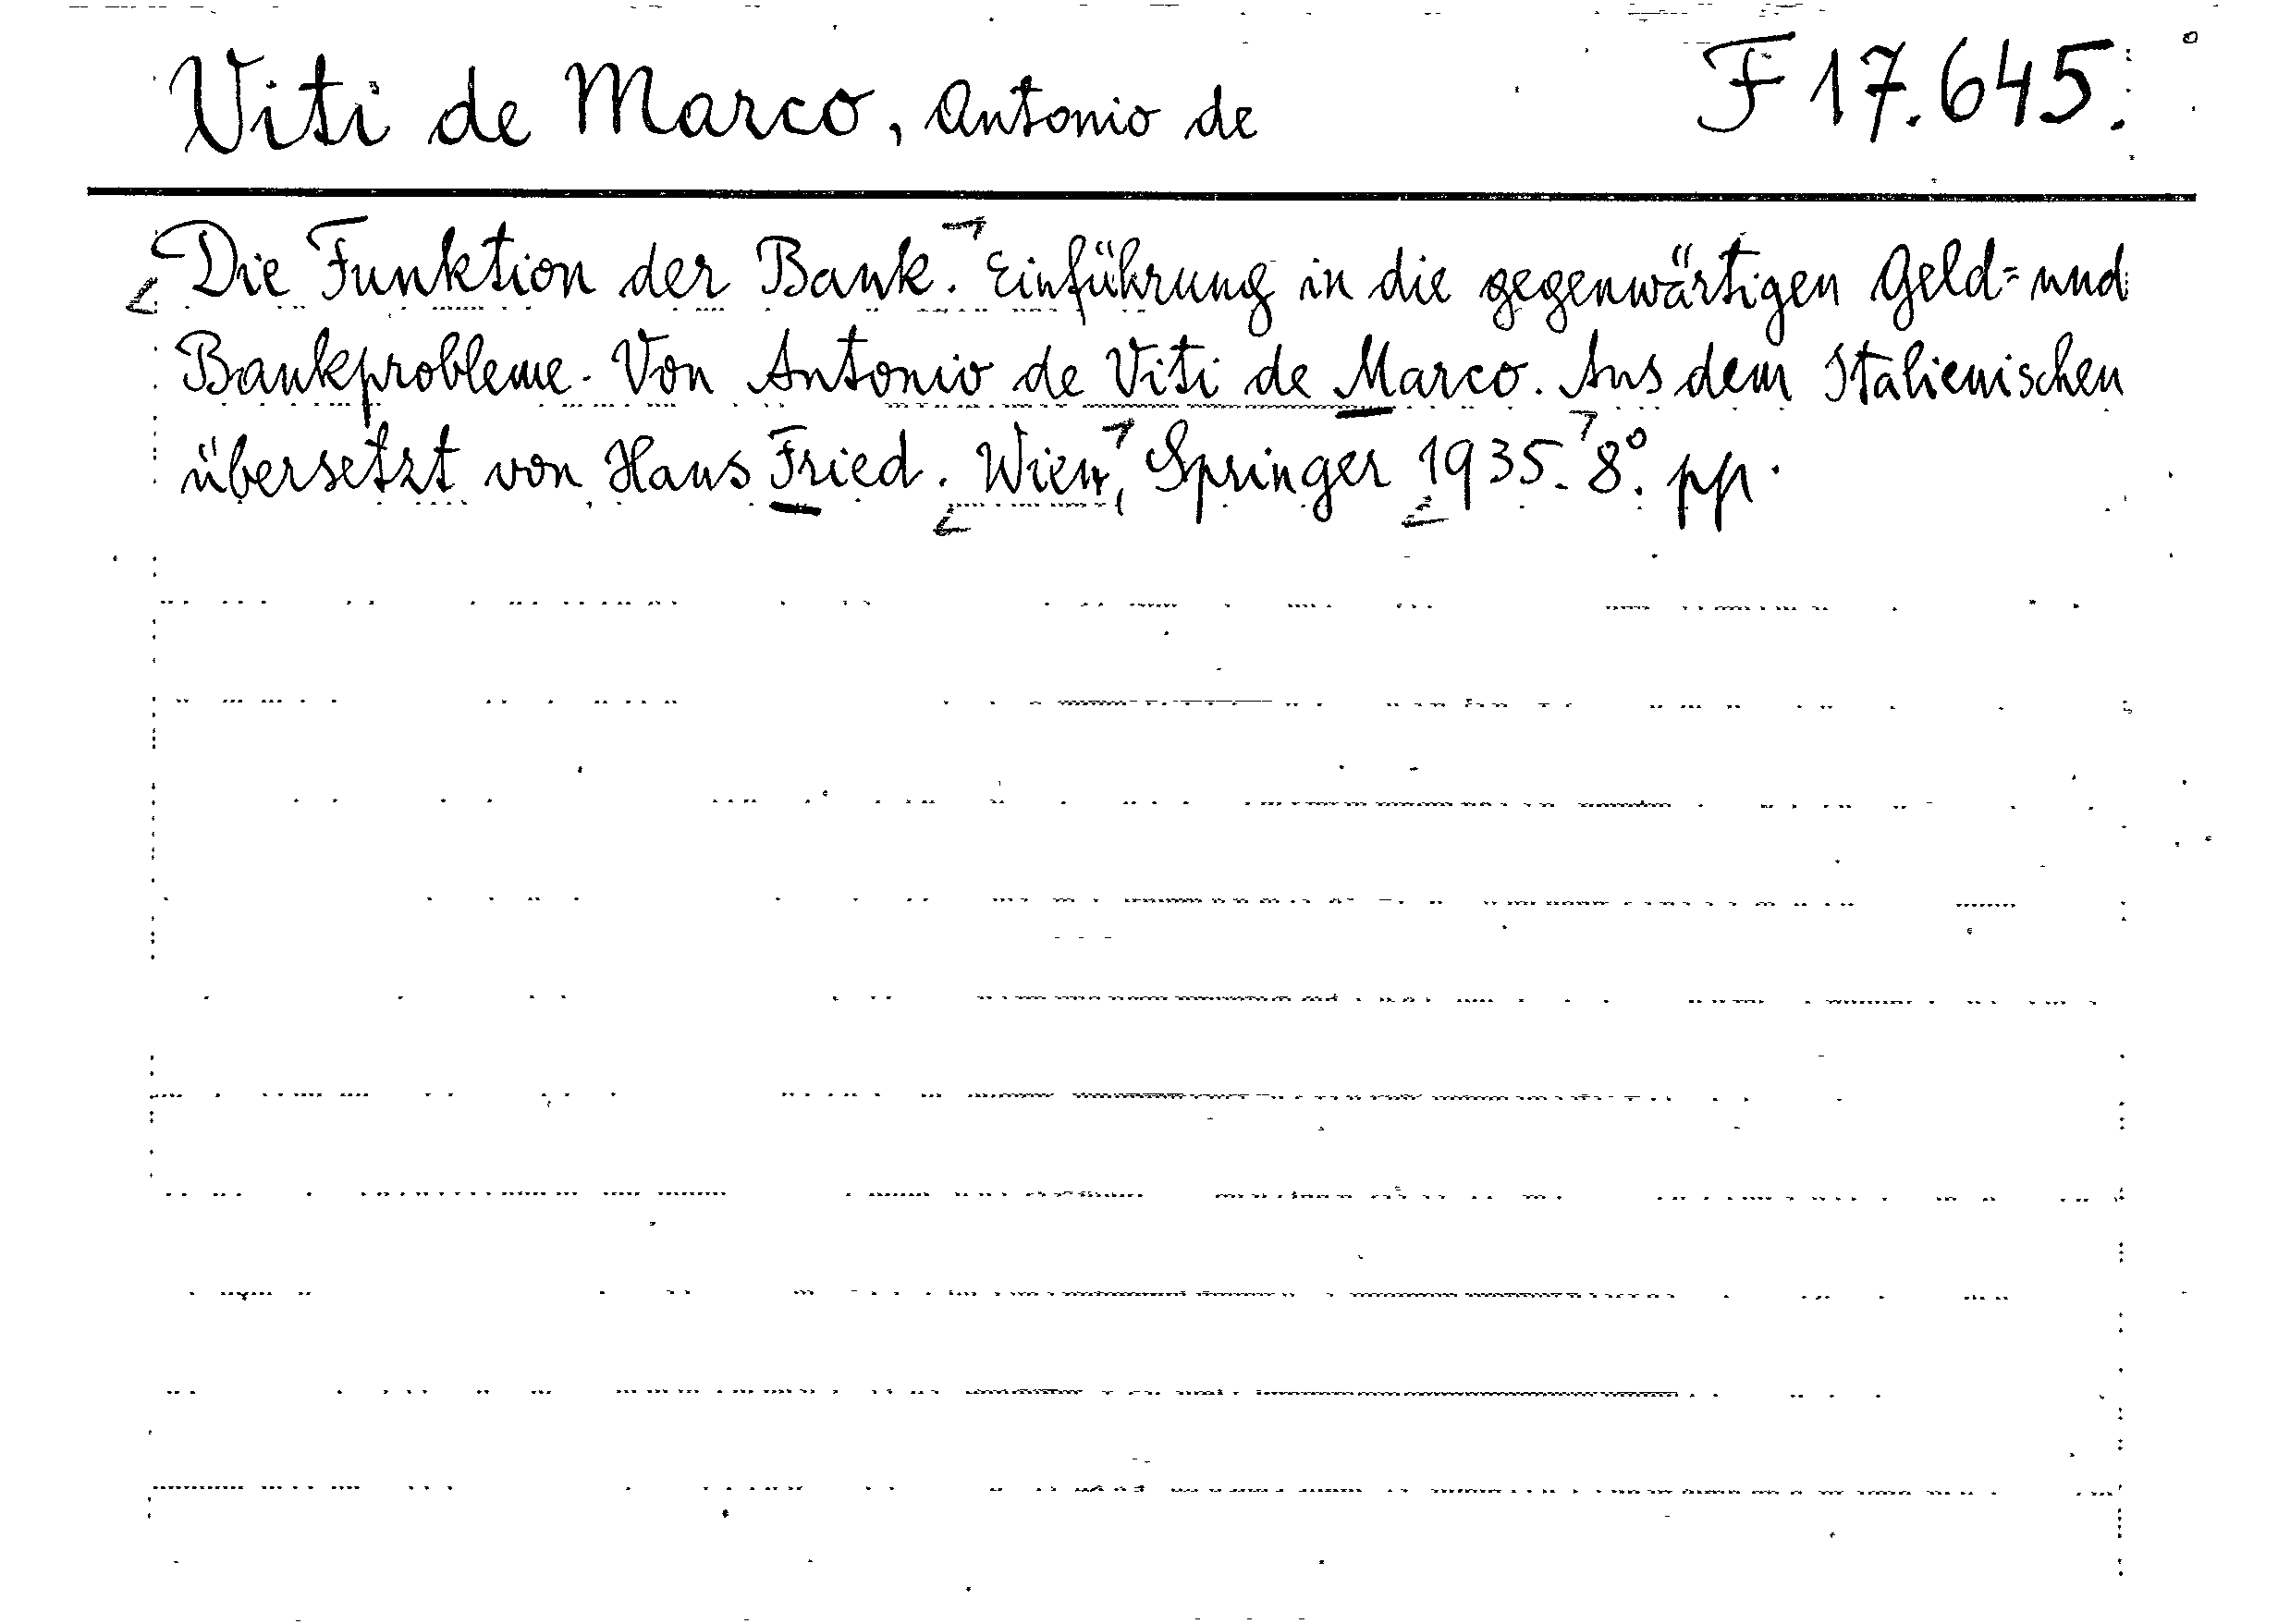 Viti de Marco, Antonio de F 17.645.
Die Funktion der Bank. Einführung in die gegenwärtigen Geld= und
Bankprobleme. Von Antonio de Viti de Marco. Aus dem Italienischen
übersetzt von Hans Fried. Wien, Springer 1935. 8°. pp.